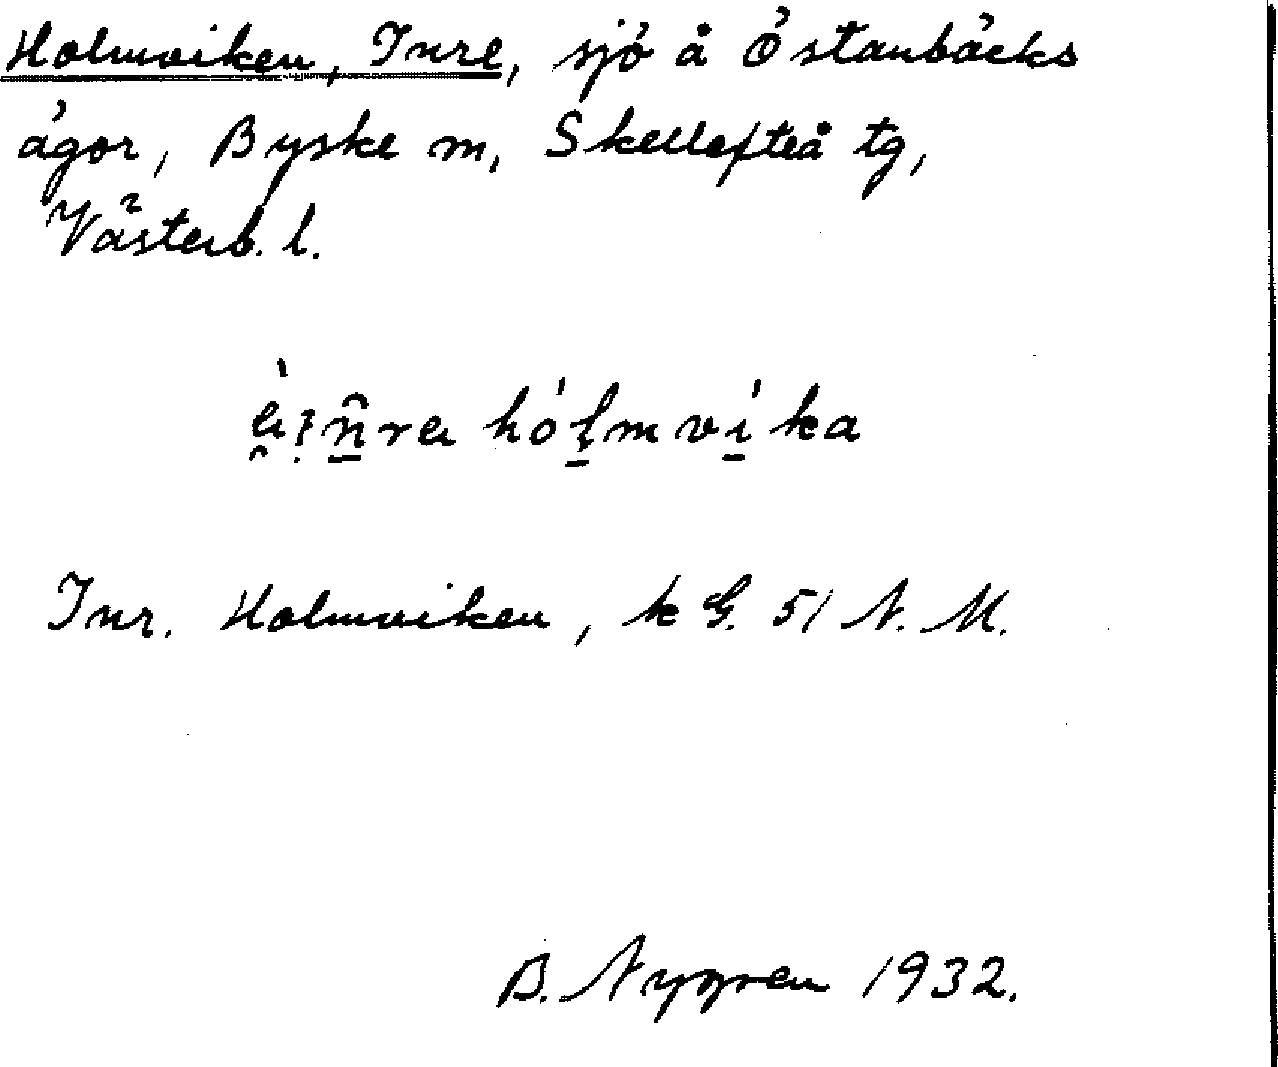 Holmviken, Inre, sjö å Östanbäcks
ägor, Byske sn, Skellefteå tg,
Västerb. l.
hólmvika
Inr. Holmviken, k G. 51 N. M.
B. Nygren 1932.